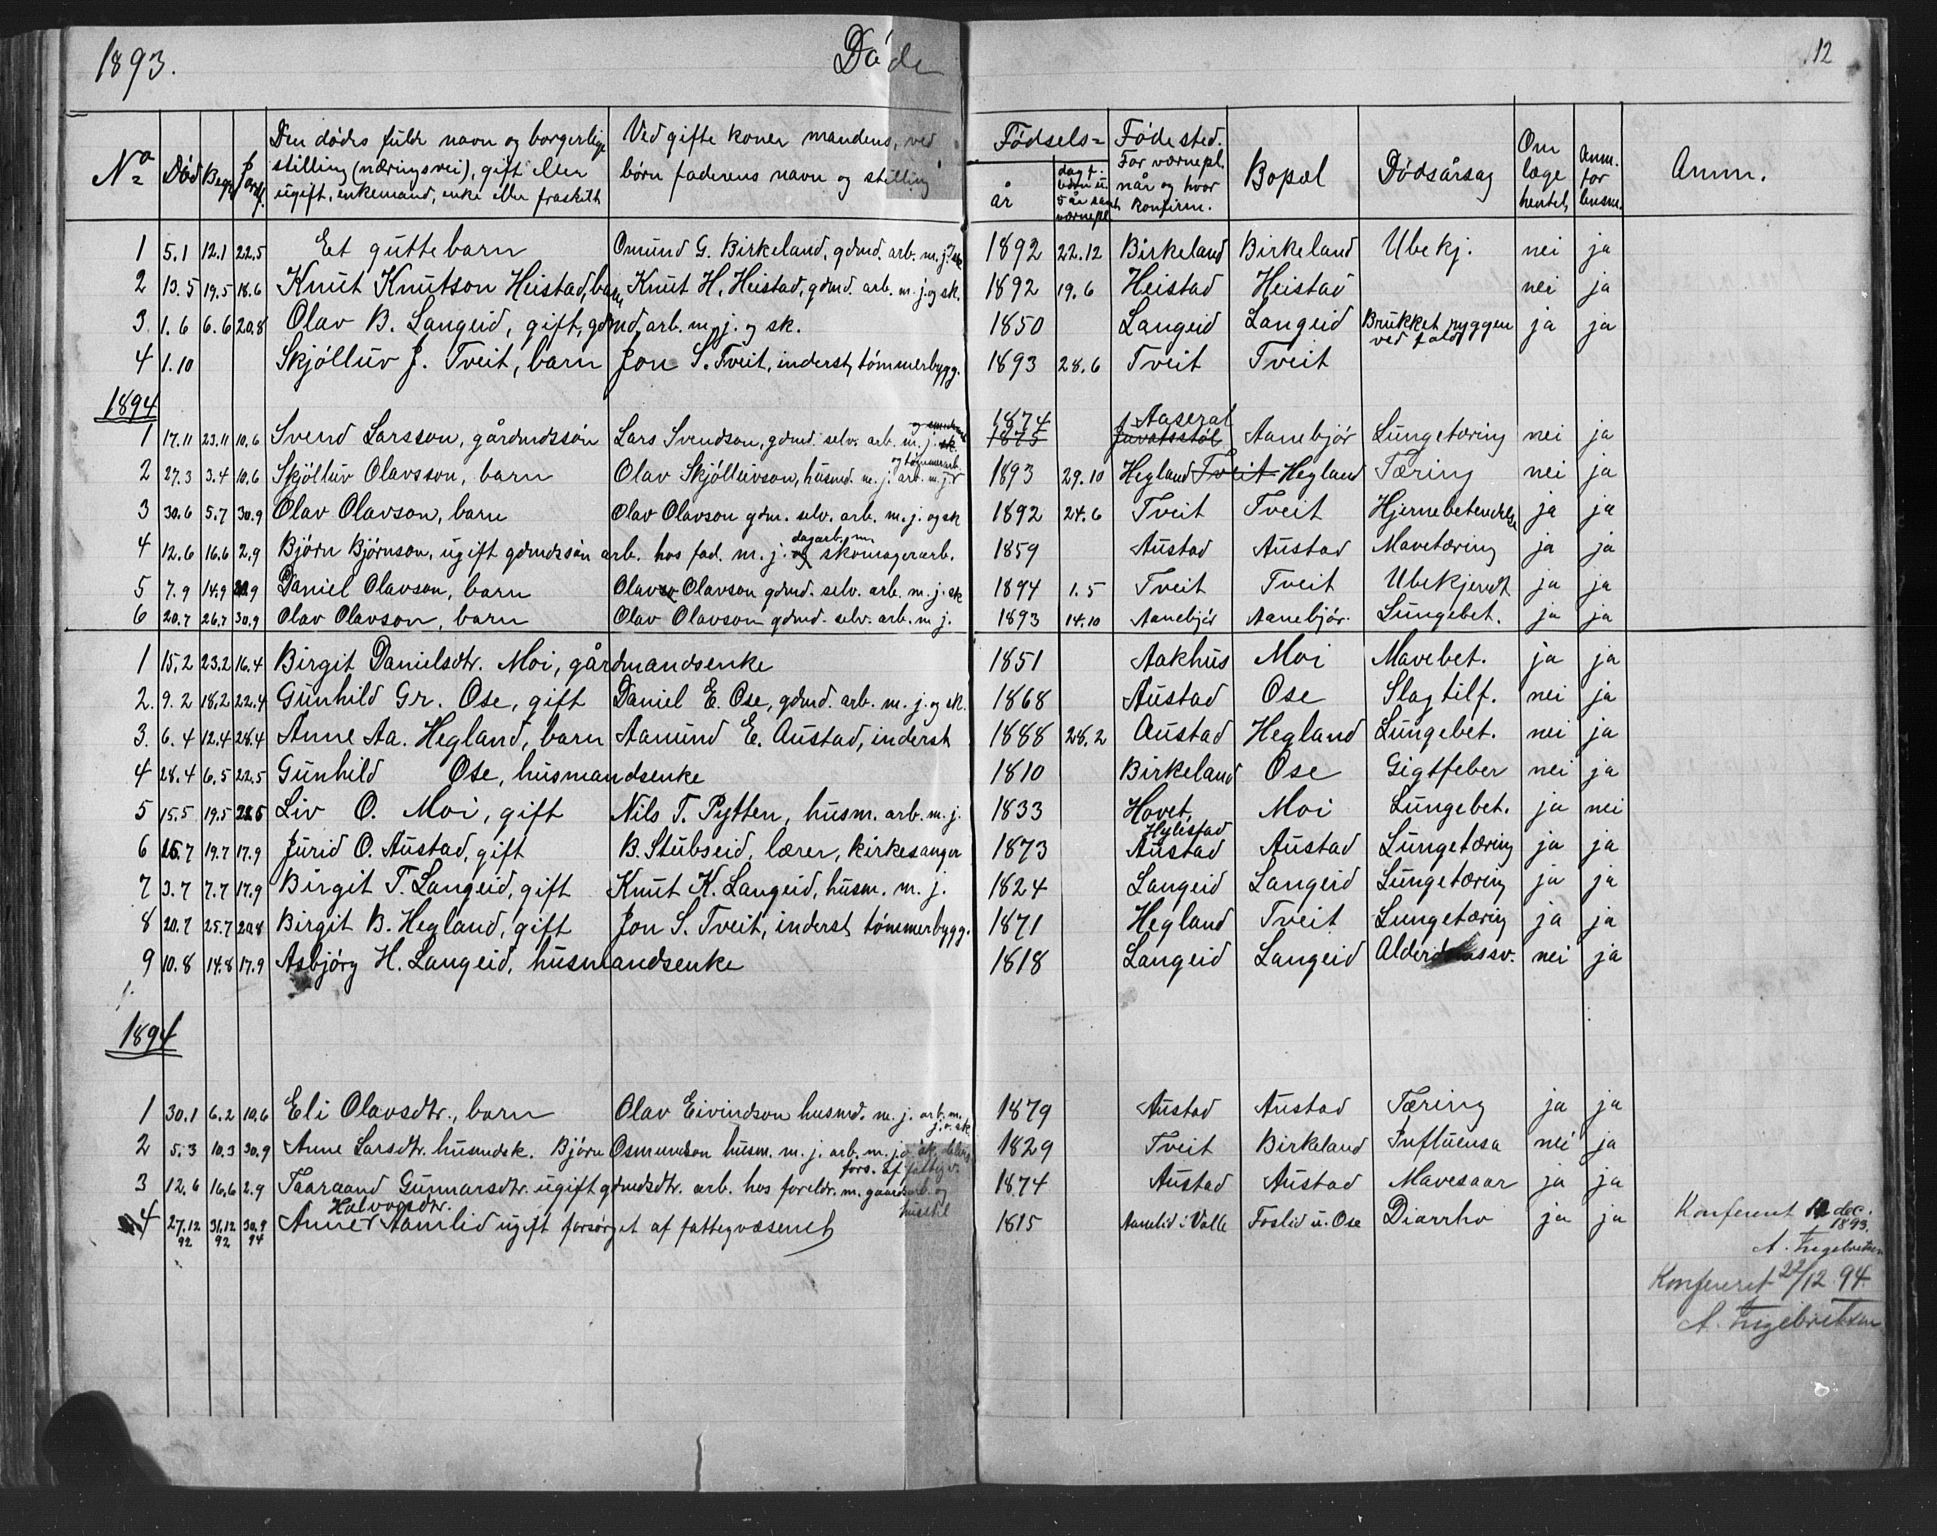 1893. Døde 12
No Død Begr. Jordf. Den dødes fulde navn og borgerlige stilling (næringsvei), gift eller ugift, enkemand, enke eller fraskilt Ved gifte koner mandens, ved børn faderens navn og stilling Fødsels= år dag f. børn u. 5 år samt værnepl. Fødested. For værnepl. når og hvor konfirm. Bopæl Dødsårsag Om læge hentet Anm. for lensm. Anm.
1 5.1 12.1 22.5 Et guttebarn Omund G. Birkeland, gdmd. arb. m. j. og sk 1892 22.12 Birkeland Birkeland Ubekj. nei ja
2 13.5 19.5 18.6 Knut Knutson Heistad, barn Knut H. Heistad, gdmd. arb. m. j. og sk. 1892 19.6 Heistad Heistad nei ja
3. 1.6 6.6 20.8 Olav B. Langeid, gift, gdmd. arb. m. j. og sk. 1850 Langeid Langeid Brukket ryggen ved fald ja ja
4 1.10 Skjølluv J. Tveit, barn Jon S. Tveit, inderst, tømmerbygg. 1893 28.6 Tveit Tveit
1894
1 17.11 23.11 10.6 Svend Larsson, gårdmdssøn Lars Svendson, gdmd. selv. arb. m. j. sk. 1874 1875 Aaseral Aanebjør Lungetæring nei ja
2 27.3 3.4 10.6 Skjølluv Olavsson, barn Olav Skjølluvson, husmd. m. j. arb. m. j. og tømmerarb. 1893 29.10 Hegland Tveit Hegland Tæring nei ja
3 30.6 5.7 30.9 Olav Olavson, barn Olav Olavson gdm. selv. arb. m. j. og sk 1892 24.6 Tveit Tveit Hjernebetendelse ja ja
4 12.6 16.6 2.9 Bjørn Bjørnson, ugift gdmdssøn arb. hos fad. m. j. og dagarb. m. skomagerarb. 1859 Austad Austad Mavetæring ja ja
5 7.9 14.9 9 Daniel Olavson, barn Olav Olavson gdmd. selv. arb. m. j. sk 1894 1.5 Tveit Tveit Ubekjendt ja ja
6 20.7 26.7 30.9 Olav Olavson, barn Olav Olavson gdmd. selv. arb. m j. 1893 14.10 Aanebjør Aanebjør. Lungebet. ja ja
1 15.2 23.2 16.4 Birgit Danielsdtr. Moi, gårdmandsenke 1851 Aakhus Moi Mavebet. ja ja
2. 9.2 18.2 22.4 Gunhild Gr. Ose, gift Daniel E. Ose, gdmd. arb. m. j. og sk. 1868 Austad Ose Slagtilf. nei ja
3. 6.4 12.4 28.4 Anne Aa. Hegland, barn Aamund E. Austad, inderst 1888 28.2 Austad Hegland Lungebet. nei ja
4 28.4 6.5 22.5 Gunhild Ose, husmandsenke 1810 Birkeland Ose Gigtfeber nei ja
5 15.5 19.5 22.5 Liv O. Moi, gift Nils T. Pytten, husm. arb. m. j. 1833 Hovet, Hylestad Moi Lungebet. ja nei
6 15.7 19.7 17.9 Jurid O. Austad, gift B. Stubseid, lærer, kirkesanger 1873 Austad Austad Lungetæring ja ja
7 3.7 7.7 17.9 Birgit T. Langeid, gift Knut K. Langeid, husm. m. j. 1824 Langeid Langeid Lungetæring ja ja
8 20.7 25.7 20.8 Birgit B. Hegland, gift Jon S. Tveit, inderst, tømmerbygg. 1871 Hegland Tveit Lungetæring ja ja
9 10.8 14.8 17.9 Asbjørg H. Langeid, husmandsenke 1818 Langeid Langeid Alderdomssv. nei ja
1894
1 30.1 6.2 10.6 Eli Olavsdtr., barn Olav Eivindson husmd. m. j. arb. m. j. o. sk. 1879 Austad Austad Tæring ja ja
2 5.3 10.3 30.9 Anne Larsdtr. husmdsk. Bjørn Osmundson husm. m. j. arb. m. j. o. sk. fors. af fattigv. 1829 Tveit Birkeland Influensa nei ja
3 12.6 16.6 2.9 Taaraand Gunnarsdtr. ugift gdmdsdtr. arb. hos foreldr. m. gaardsarb. og husstel 1874 Austad Austad Mavesaar ja ja
4 27.12 92 31.12 92 30.9 94 Anne Halvorsdtr. Aamlid ugift forsørget af fattegvæsenet 1815 Aamlid i Valle Foslid u. Ose Diarrho ja ja
Konferert 12 dec. 1893.
A. Engebretsen
Konfereret 22/12 94.
A. Engebretsen